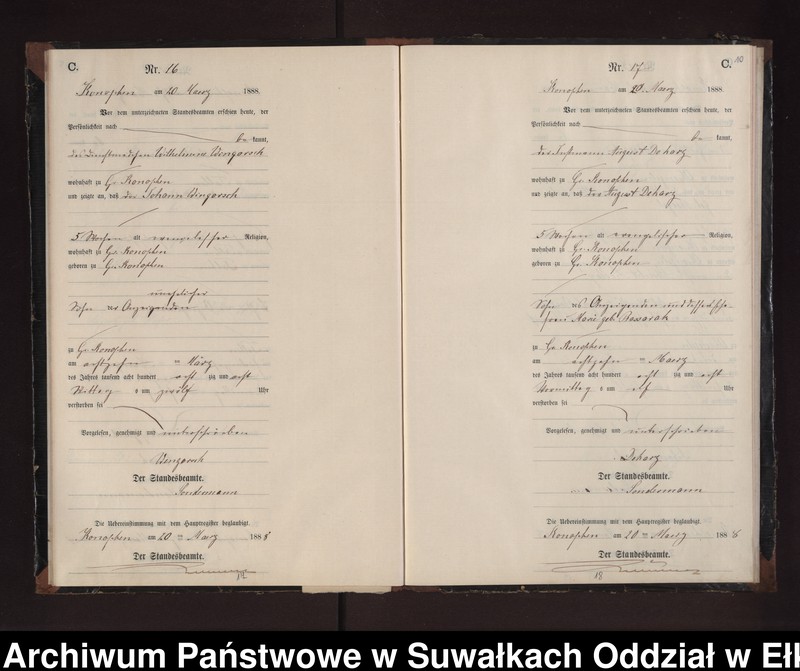 C.
Nr. 16
Konophen am 20 Maerz 1888.
Vor dem unterzeichneten Standesbeamten erschien heute, der
Persönlichkeit nach
be kannt,
Wilhelmine
wohnhaft zu Gr Konophen
und zeigte an, daß der Johann
5 Wochen alt evangelischer Religion,
wohnhaft zu Gr Konophen
geboren zu Gr Konophen
unehelicher
Sohn der Anzeigenden
zu Gr Konophen
am achtzehn ten März
des Jahres tausend acht hundert acht zig und acht
Mittag s um zwölf Uhr
verstorben sei
Vorgelesen, genehmigt und unterschrieben
Der Standesbeamte.
Sondermann
Die Uebereinstimmung mit dem Hauptregister beglaubigt.
Konophen am 20 ten Maerz 1888
Der Standesbeamte.
C.
10
Nr. 17
Konophen am 20 Maerz 1888.
Vor dem unterzeichneten Standesbeamten erschien heute, der
Persönlichkeit nach
be kannt,
August
wohnhaft zu Gr Konophen
und zeigte an, daß der August
5 Wochen alt evangelischer Religion,
wohnhaft zu Gr Konophen
geboren zu Gr Konophen
Sohn des Anzeigenden und dessen Ehe-
frau Marie geb.
zu Gr Konophen
am achtzehn ten Maerz
des Jahres tausend acht hundert acht zig und acht
Vormittag s um elf Uhr
verstorben sei
Vorgelesen, genehmigt und unterschrieben
Der Standesbeamte.
Sondermann
Die Uebereinstimmung mit dem Hauptregister beglaubigt.
Konophen am 20 ten Maerz 1888
Der Standesbeamte.
Archiwum Państwowe w Suwałkach Oddział w Eł